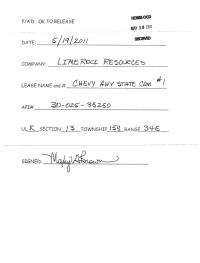 HOBBS OCD
F/WD: OK TO RELEASE
MAY 19 2011
RECEIVED
DATE: 5/19/2011
COMPANY: LIMEROCK RESOURCES
LEASE NAME and #: CHEVY AWV STATE COM #1
API# 30-025-35250
UL K SECTION 15 TOWNSHIP 15S RANGE 34E
SIGNED: